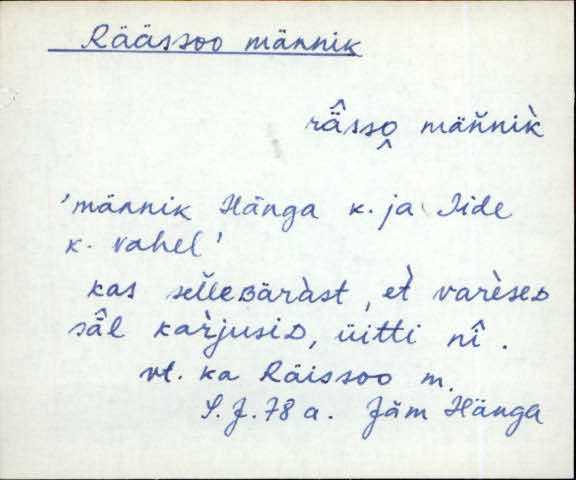 Räässoo männik
rä̂sso̭ mäňnik̀
'männik Hänga k. ja Iide
k. vahel'
kas sel̆leᴅäràst, et̀ varèseᴅ
sä̂l kar̀jusiᴅ, üitti nî.
vt. ka Räissoo m.
S.J. 78 a. Jäm Hänga